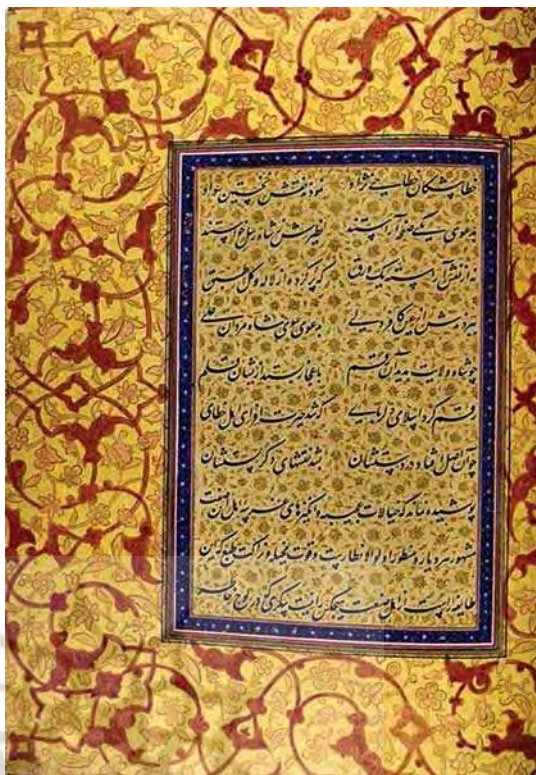 خطا پیشگان خطایی نژاد نمودند نقش نخستین سواد
بدعوی یکی صفحه آراستند نظیرش ز شاه رسل خواستند
نه از نقش آراسته یک ورق که پر کرده از لاله و گل طبق
ببردندش از عین کافر دلی بدعوی سوی شاه مردان علی
چو شاه ولایت بدید آن رقم باعجاز بستد ازیشان قلم
رقم کرد اسلامی دلربایی که شد حیرت افزای اهل خطای
چو آن اصل افتاد در دستشان بشد نقشهای دگر پستشان
پوشیده نماند که خیالات عجیبه و انگیزهای غریبه اهل این صنعت
مشهور هر دیار و منظور اولو الانظار است و قوت مخیله و نزاکت طبع که این
طایفه راست از اهل صنعت هیچکس را نیست پیکری که در لوح خاطر